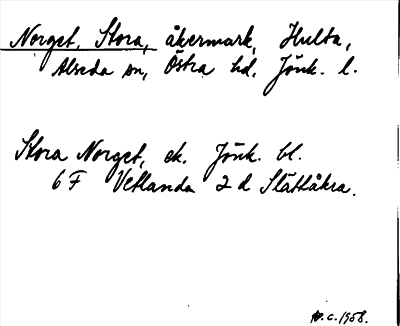 Norget, Stora, åkermark, Hulta,
Alseda sn, Östra hd, Jönk. l.
Stora Norget, ek. Jönk. bl.
6 F Vetlanda 2 d Slättåkra.
c. 1958.